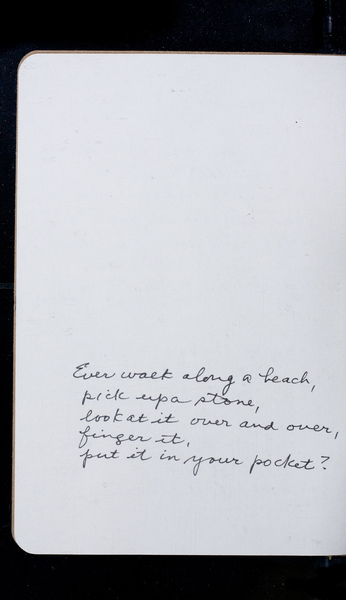 Ever walk along a beach,
pick up a stone,
look at it over and over,
finger it,
put it in your pocket?